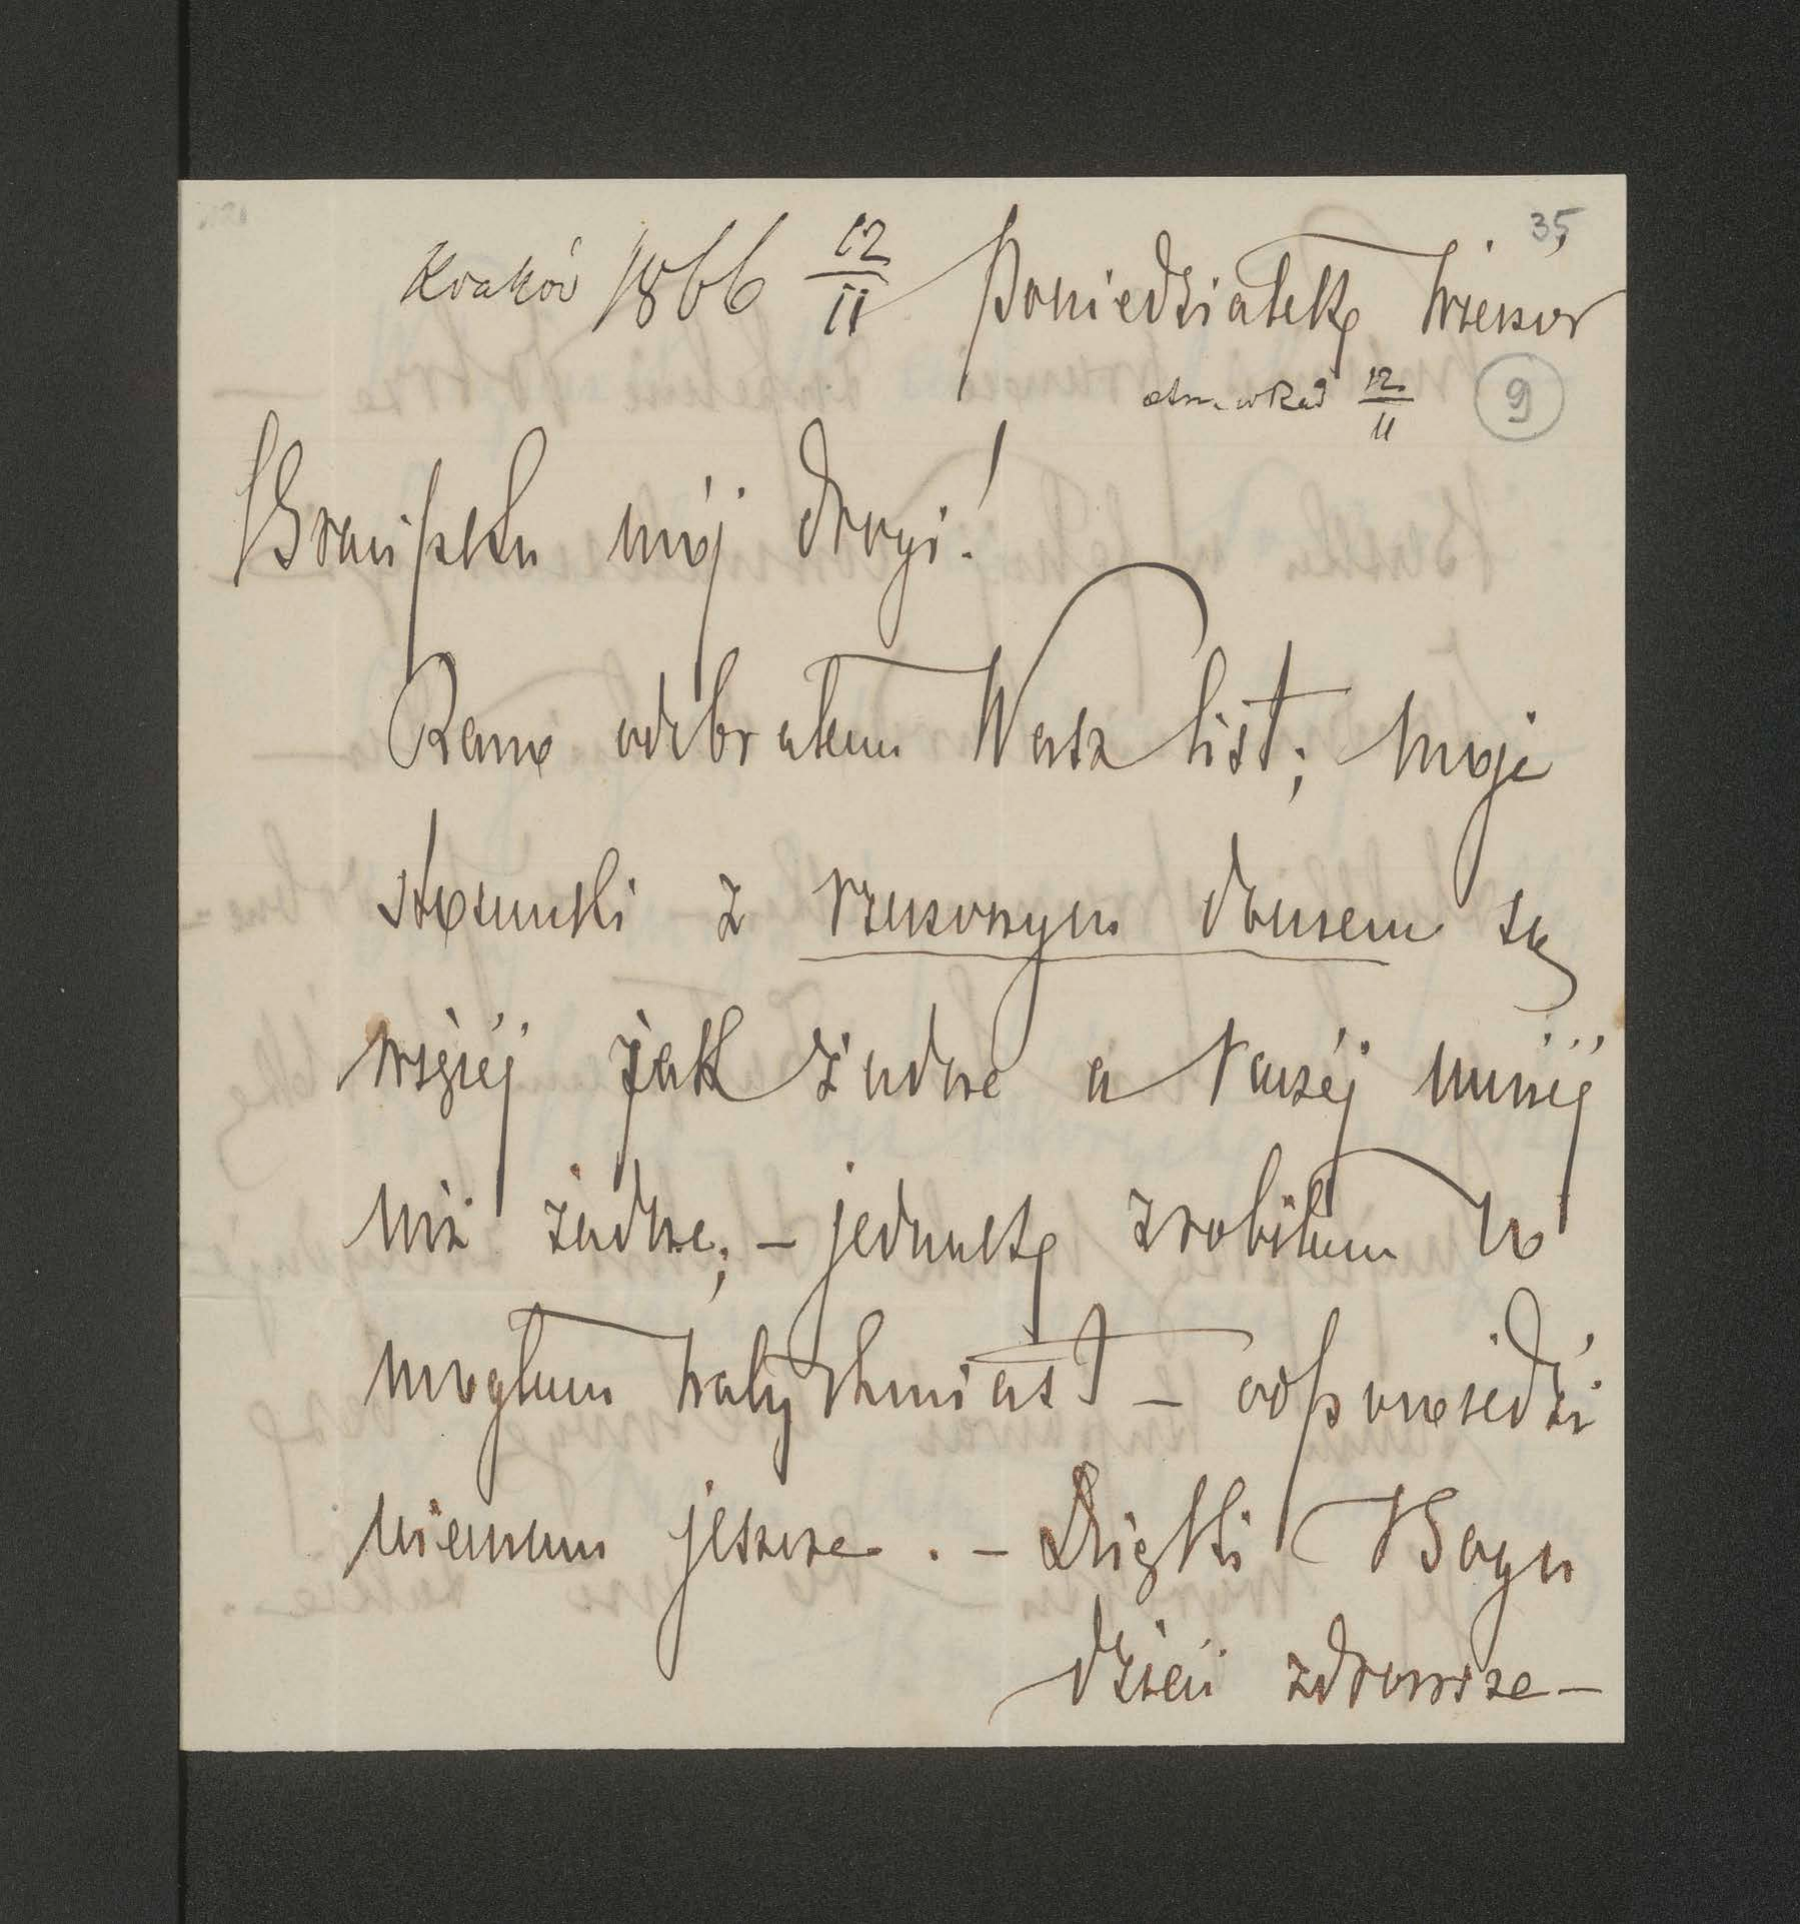 35
Kraków 1866 12/11 Poniedziałek, wieczór
12/11 9
mój drogi!
Rano odebrałem Wasz list; moje
stosunki z rzeczonym domem są
więcéj jak żadne a raczéj mniéj
niż żadne; – jednak zrobiłem co
mogłem natychmiast – odpowiedźi
niemam jeszcze. – Dzięki Bogu
dzień zdrowsze –